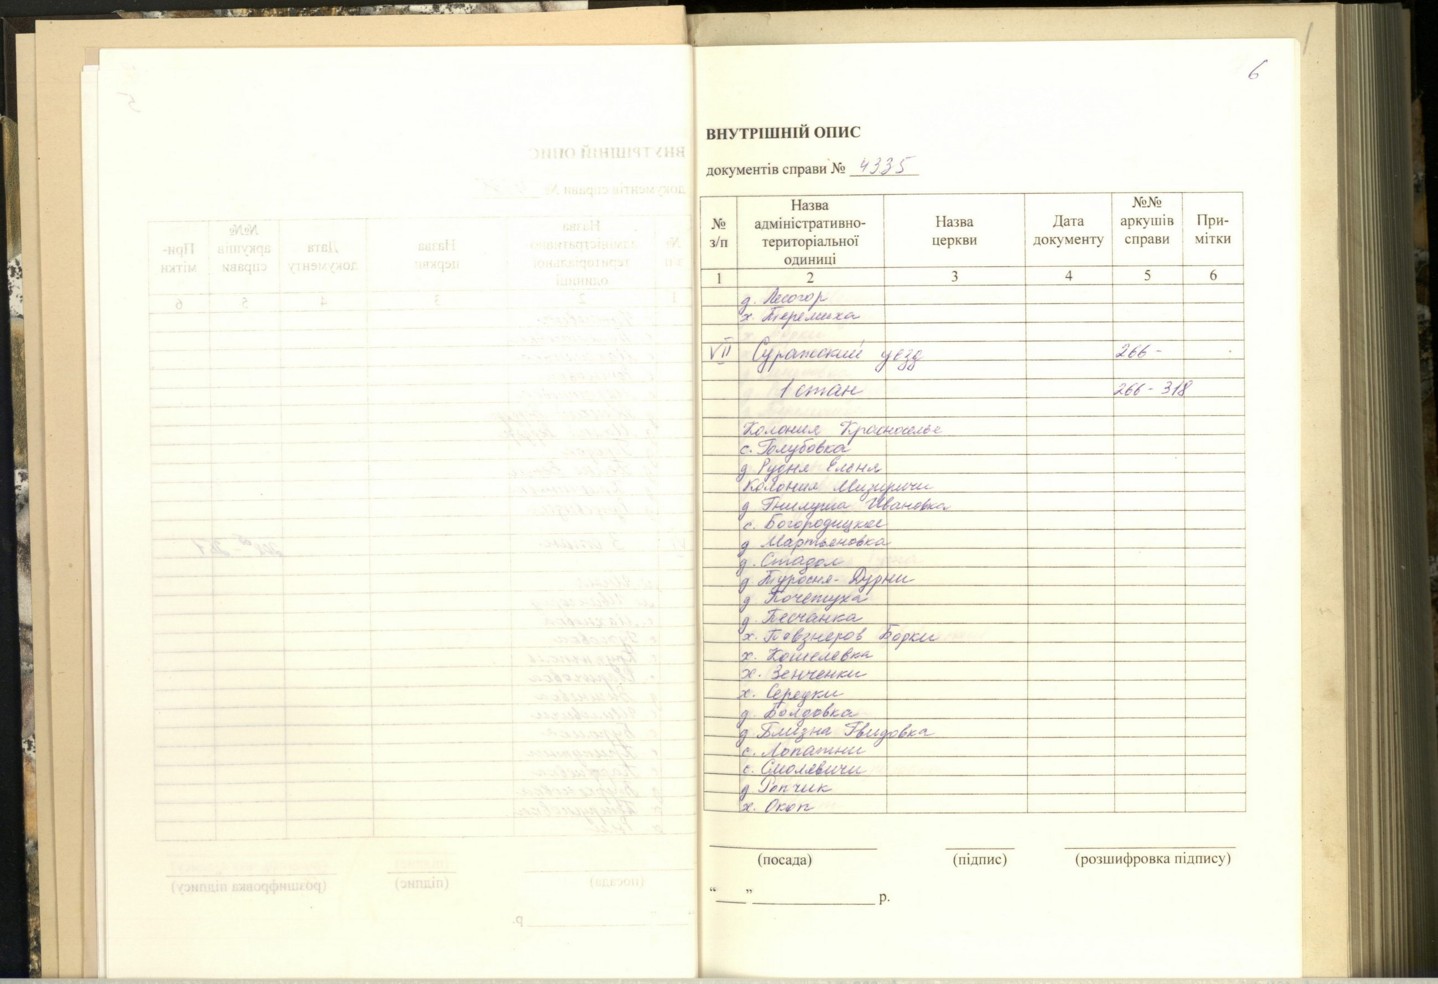 6
ВНУТРІШНІЙ ОПИС
документів справи № 4335
№ з/п | Назва адміністративно-територіальної одиниці | Назва церкви | Дата документу | №№ аркушів справи | При-мітки
1 2 3 4 5 6
д. Лесогор
х. Теремиха
VII Суражский уезд 266 -
1 стан 266 - 318
Колония Красноселье
с. Голубовка
д. Рудня Еленя
Колония Мизиричи
д Гнилуша Ивановка
с. Богородицкое
д Мартьяновка
д. Стадол
д. Туросня-Дурни
д Почетуха
д. Песчанка
х. Певзнеров Борки
х. Кошелевка
х. Зенченки
х. Середки
д. Болдовка
д Близна Гвидовка
с. Лопатни
с. Смолевичи
д Ропчик
х. Окоп
(посада) (підпис) (розшифровка підпису)
“___” ________________ р.